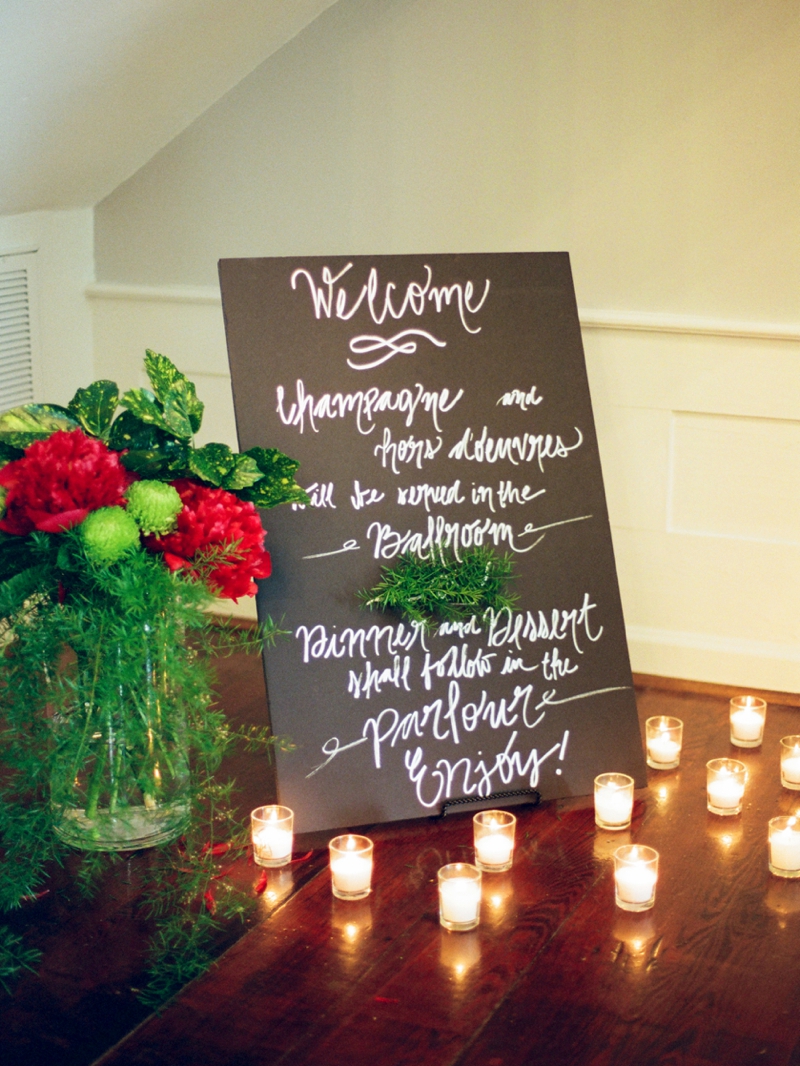 Welcome
Champagne and
hors d'oeuvres
will be served in the
Ballroom
Dinner and Dessert
shall follow in the
Parlour
Enjoy!